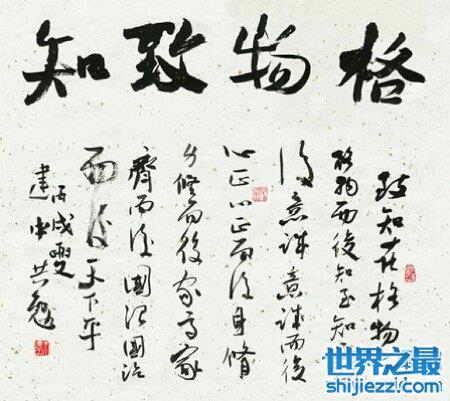 格物致知
致知在格物
格物而後知至知
後意誠意誠而後
心正心正而後身脩
身修而後家齊家
齊而後國治國治
而後天下平
丙戌
建中共勉
世界之最
shijiezzi.com